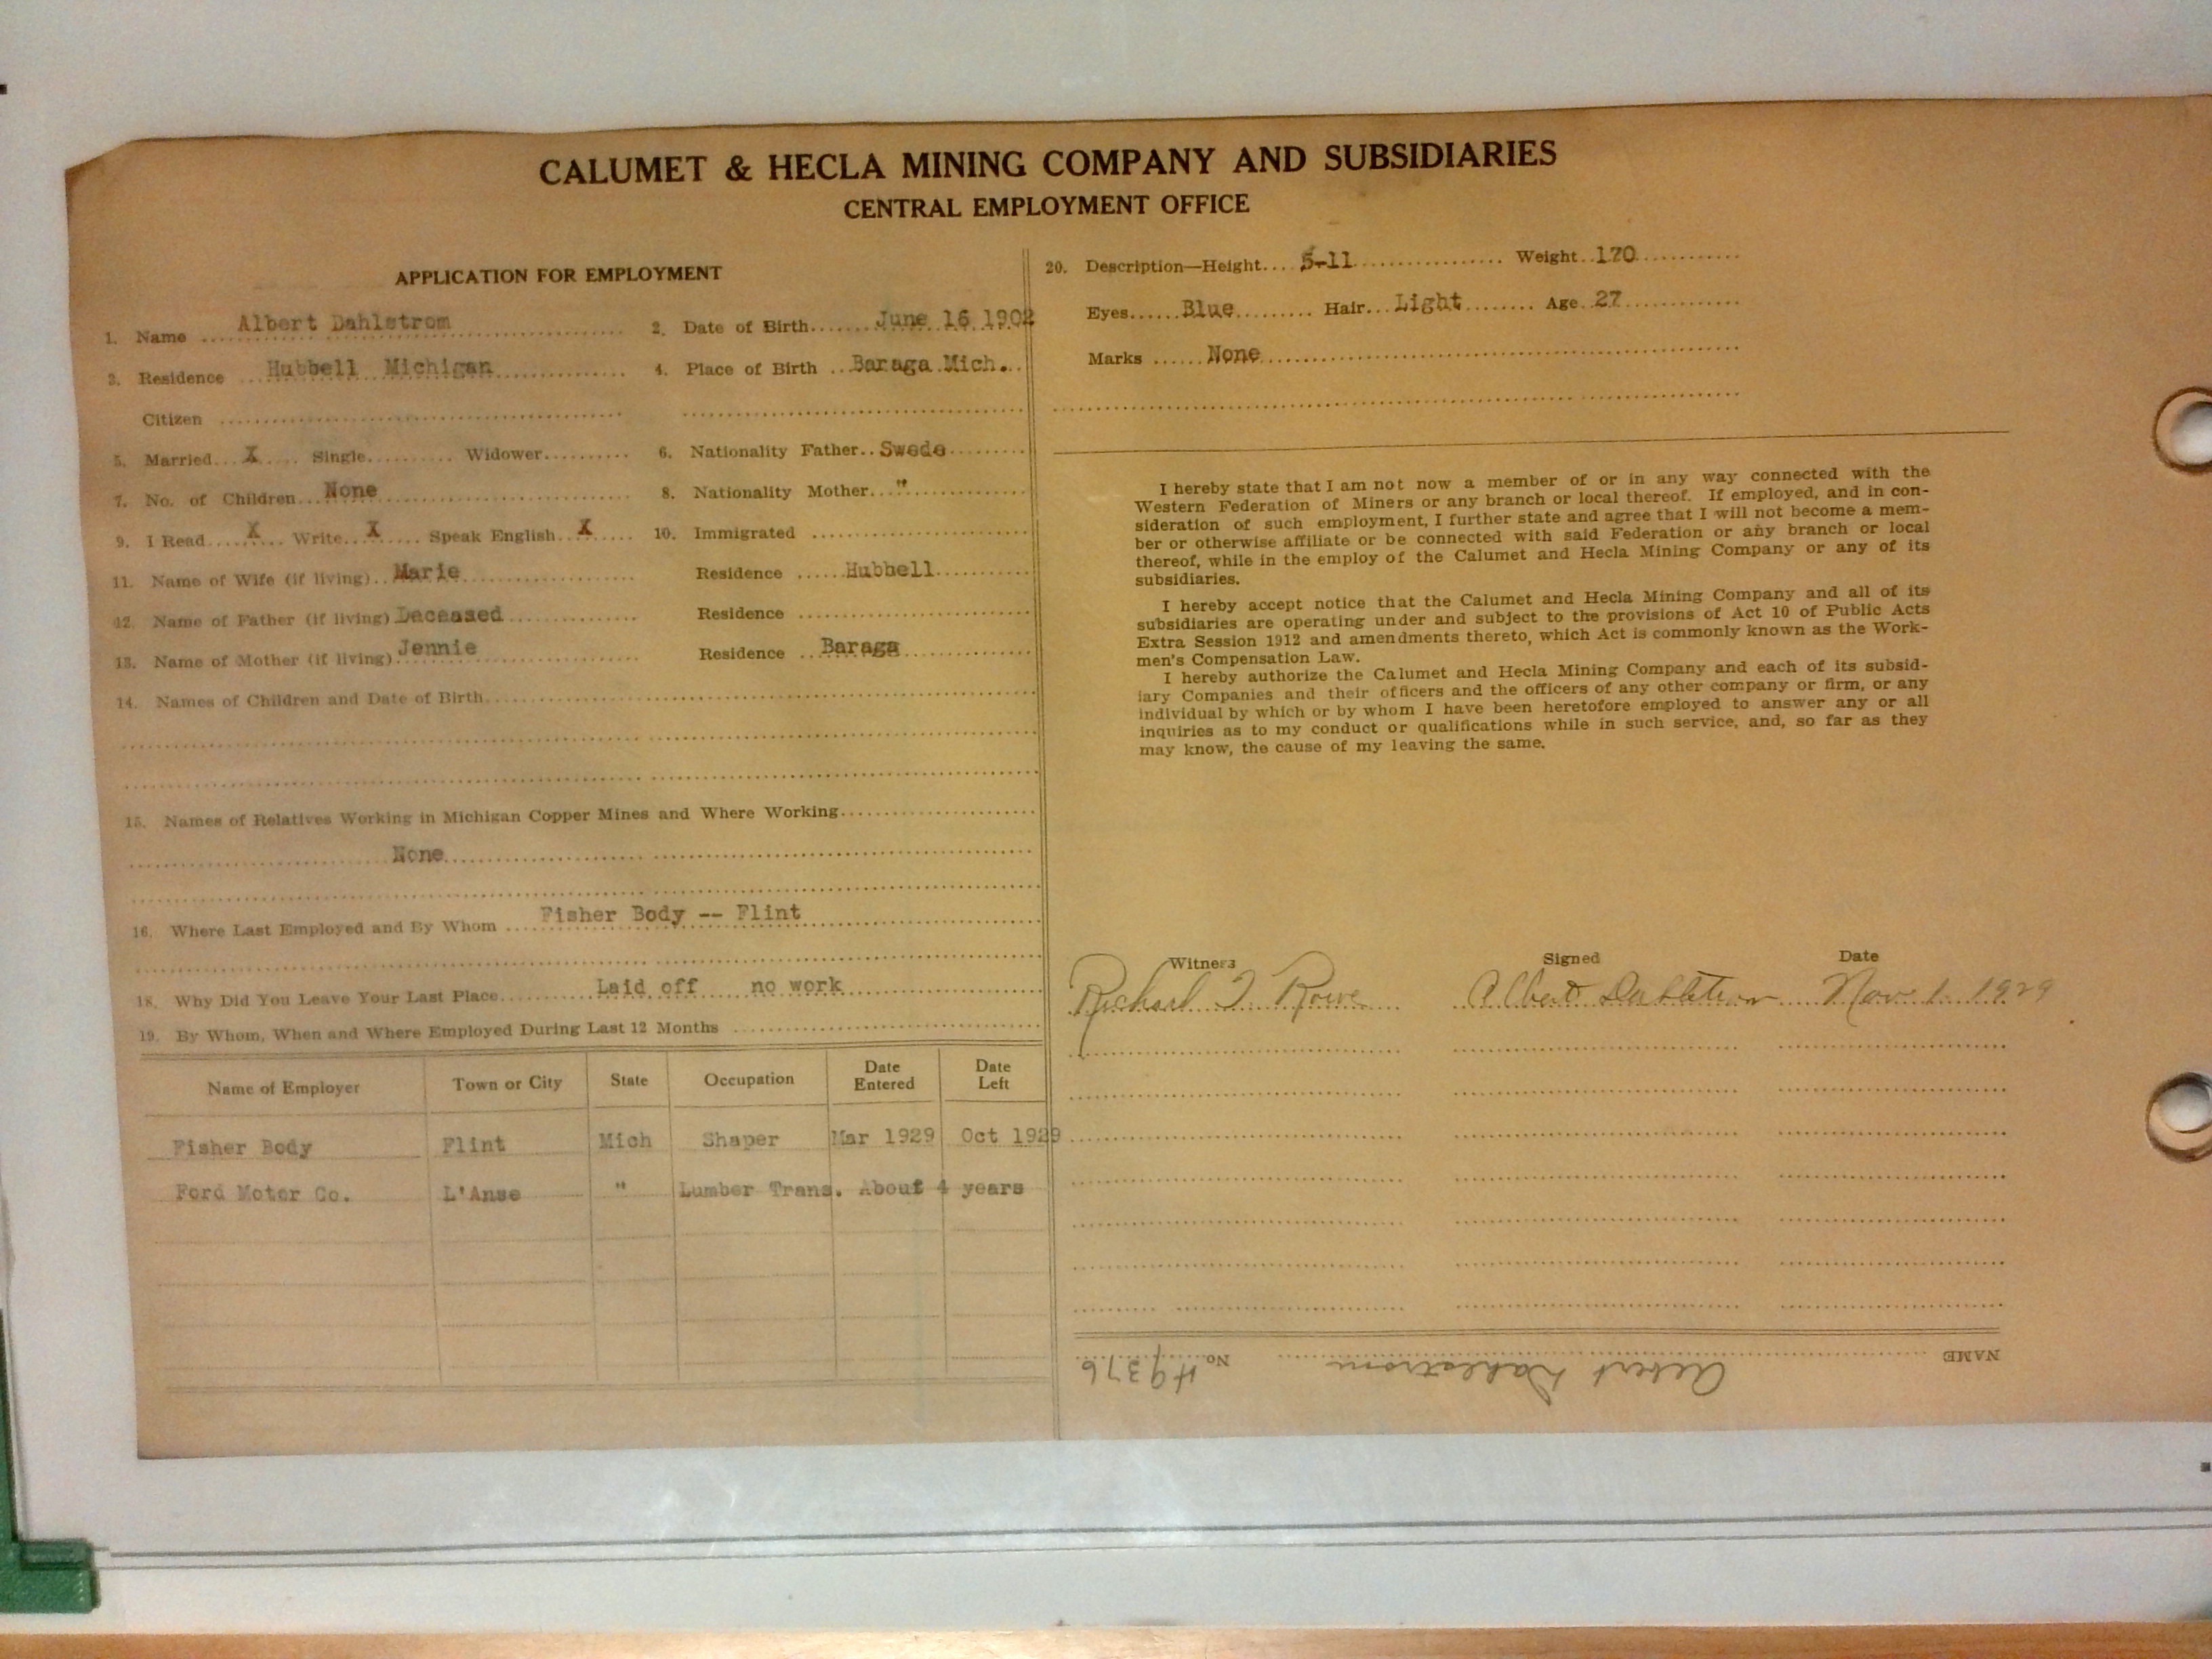 CALUMET & HECLA MINING COMPANY AND SUBSIDIARIES
CENTRAL EMPLOYMENT OFFICE
APPLICATION FOR EMPLOYMENT
1. Name Albert Dahlstrom 2. Date of Birth June 16 1902
3. Residence Hubbell Michigan 4. Place of Birth Baraga Mich.
Citizen
5. Married X Single Widower 6. Nationality Father Swede
7. No. of Children None 8. Nationality Mother "
9. I Read X Write X Speak English X 10. Immigrated
11. Name of Wife (if living) Marie Residence Hubbell
12. Name of Father (if living) Deceased Residence
13. Name of Mother (if living) Jennie Residence Baraga
14. Names of Children and Date of Birth
15. Names of Relatives Working in Michigan Copper Mines and Where Working
None
16. Where Last Employed and By Whom Fisher Body -- Flint
18. Why Did You Leave Your Last Place Laid off no work
19. By Whom, When and Where Employed During Last 12 Months
Name of Employer Town or City State Occupation Date Entered Date Left
Fisher Body Flint Mich Shaper Mar 1929 Oct 1929
Ford Motor Co. L'Anse " Lumber Trans. About 4 years
20. Description—Height 5-11 Weight 170
Eyes Blue Hair Light Age 27
Marks None
I hereby state that I am not now a member of or in any way connected with the
Western Federation of Miners or any branch or local thereof. If employed, and in con-
sideration of such employment, I further state and agree that I will not become a mem-
ber or otherwise affiliate or be connected with said Federation or any branch or local
thereof, while in the employ of the Calumet and Hecla Mining Company or any of its
subsidiaries.
I hereby accept notice that the Calumet and Hecla Mining Company and all of its
subsidiaries are operating under and subject to the provisions of Act 10 of Public Acts
Extra Session 1912 and amendments thereto, which Act is commonly known as the Work-
men's Compensation Law.
I hereby authorize the Calumet and Hecla Mining Company and each of its subsid-
iary Companies and their officers and the officers of any other company or firm, or any
individual by which or by whom I have been heretofore employed to answer any or all
inquiries as to my conduct or qualifications while in such service, and, so far as they
may know, the cause of my leaving the same.
Witness Signed Date
Richard J. Rowe Albert Dahlstrom Nov 1 1929
NAME Albert Dahlstrom No. H9376